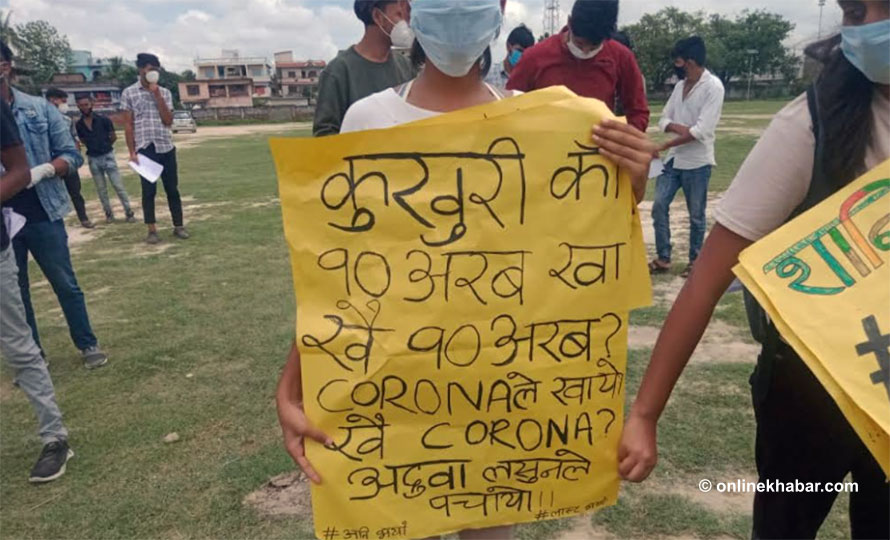 कुरकुरी काॅ
१० अरब खा
खै १० अरब?
CORONAले खायो
खै CORONA?
अदुवा लसुनले
पचायो!!
#अति भयो
शान्ति
#
© www.onlinekhabar.com